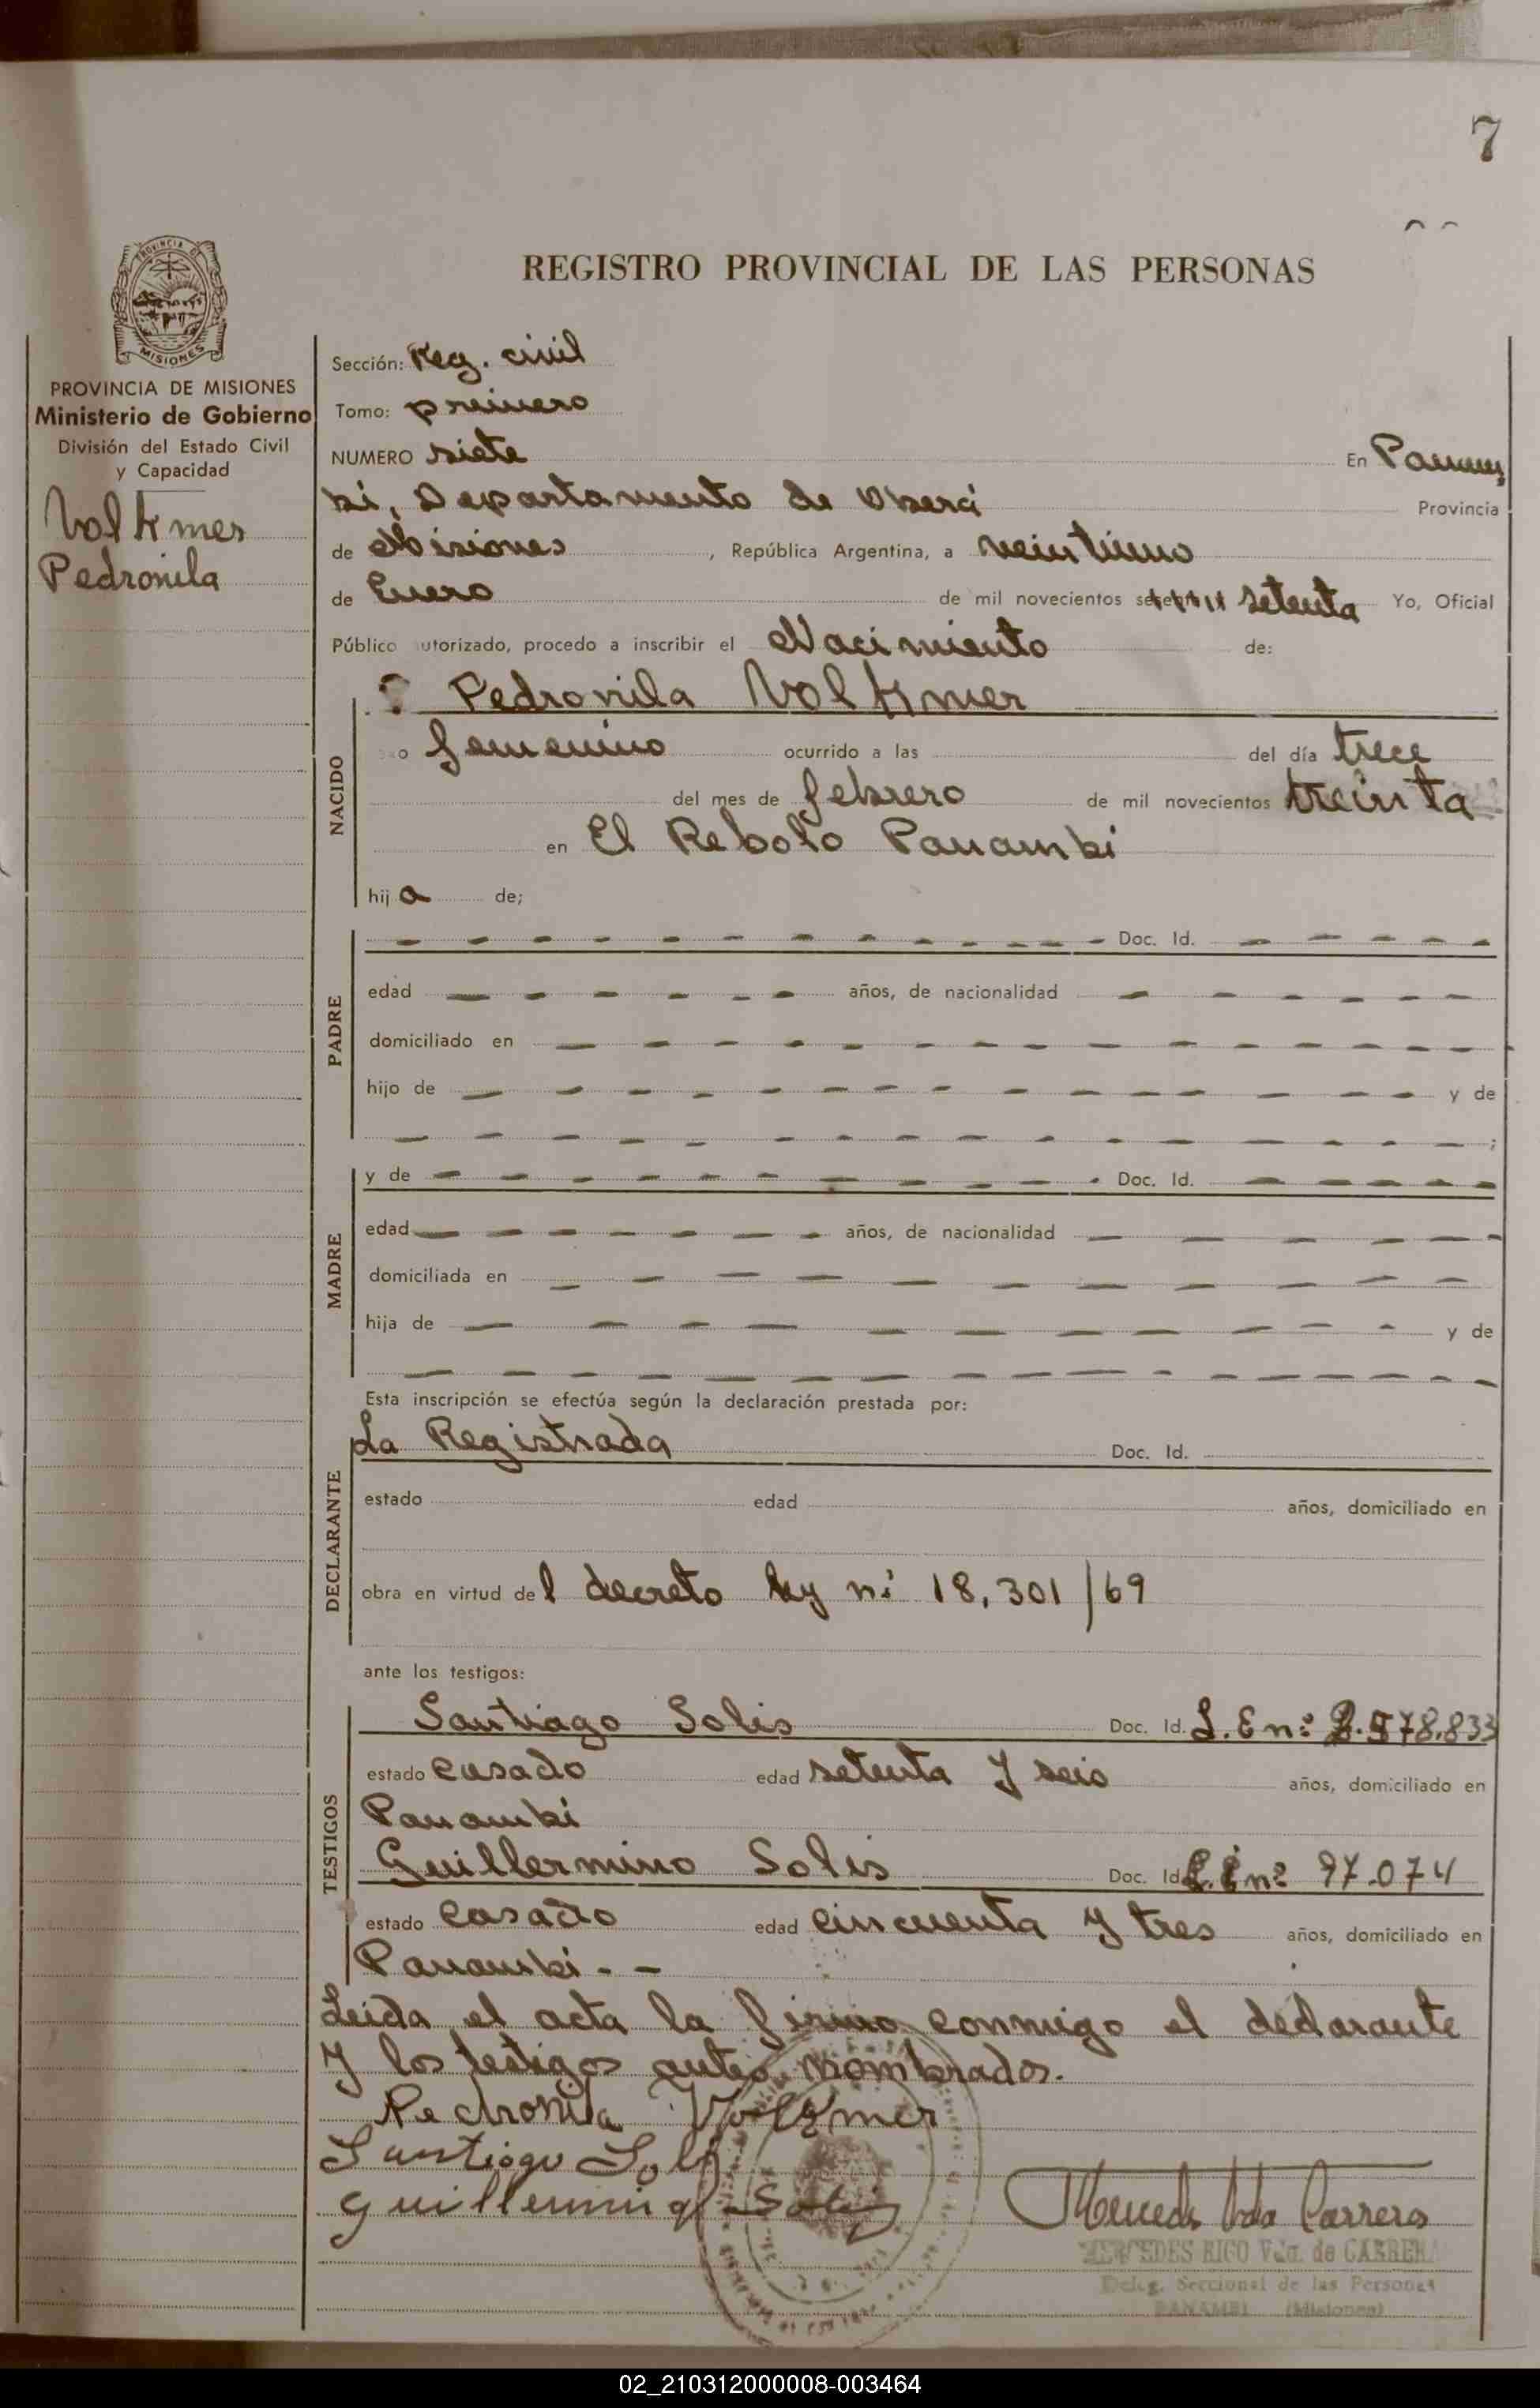 7
REGISTRO PROVINCIAL DE LAS PERSONAS
PROVINCIA DE
MISIONES
PROVINCIA DE MISIONES
Ministerio de Gobierno
División del Estado Civil
y Capacidad
Pedronila
Sección: Reg. civil
Tomo: primero
NUMERO siete En Panam
bi, Departamento de Oberá Provincia
de Misiones , República Argentina, a veintiuno
de Enero de mil novecientos setenta Yo, Oficial
Público utorizado, procedo a inscribir el Nacimiento de:
Pedronila Volkmer
NACIDO
o femenino ocurrido a las del día trece
del mes de febrero de mil novecientos treinta
en El Rebolo Panambi
hija de;
PADRE
Doc. Id.
edad años, de nacionalidad
domiciliado en
hijo de y de
;
MADRE
y de Doc. Id.
edad años, de nacionalidad
domiciliada en
hija de y de
Esta inscripción se efectúa según la declaración prestada por:
DECLARANTE
La Registrada Doc. Id.
estado edad años, domiciliado en
obra en virtud del decreto ley nº 18,301/69
ante los testigos:
TESTIGOS
Santiago Solis Doc. Id. L. E nº
estado casado edad setenta y seis años, domiciliado en
Panambi
Guillermino Solis Doc. Id nº 97.074
estado casado edad cincuenta y tres años, domiciliado en
Panambi. -
Leida el acta la firma conmigo el declarante
y los testigos antes nombrados.
Pedronila Volkmer
Santiago Solis
Guillermino Solis
Mercedes Vda Carrera
MERCEDES RICO Vda. de CARRERA
Deleg. Seccional de las Personas
PANAMBI (Misiones)
02_210312000008-003464